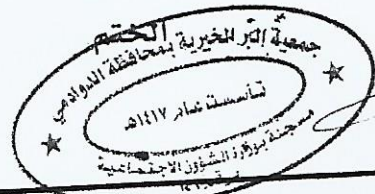 الختم
جمعية البر الخيرية بمحافظة الدوادمي
تأسست عام ١٤١٧هـ
مسجلة بوزارة الشؤون الاجتماعية